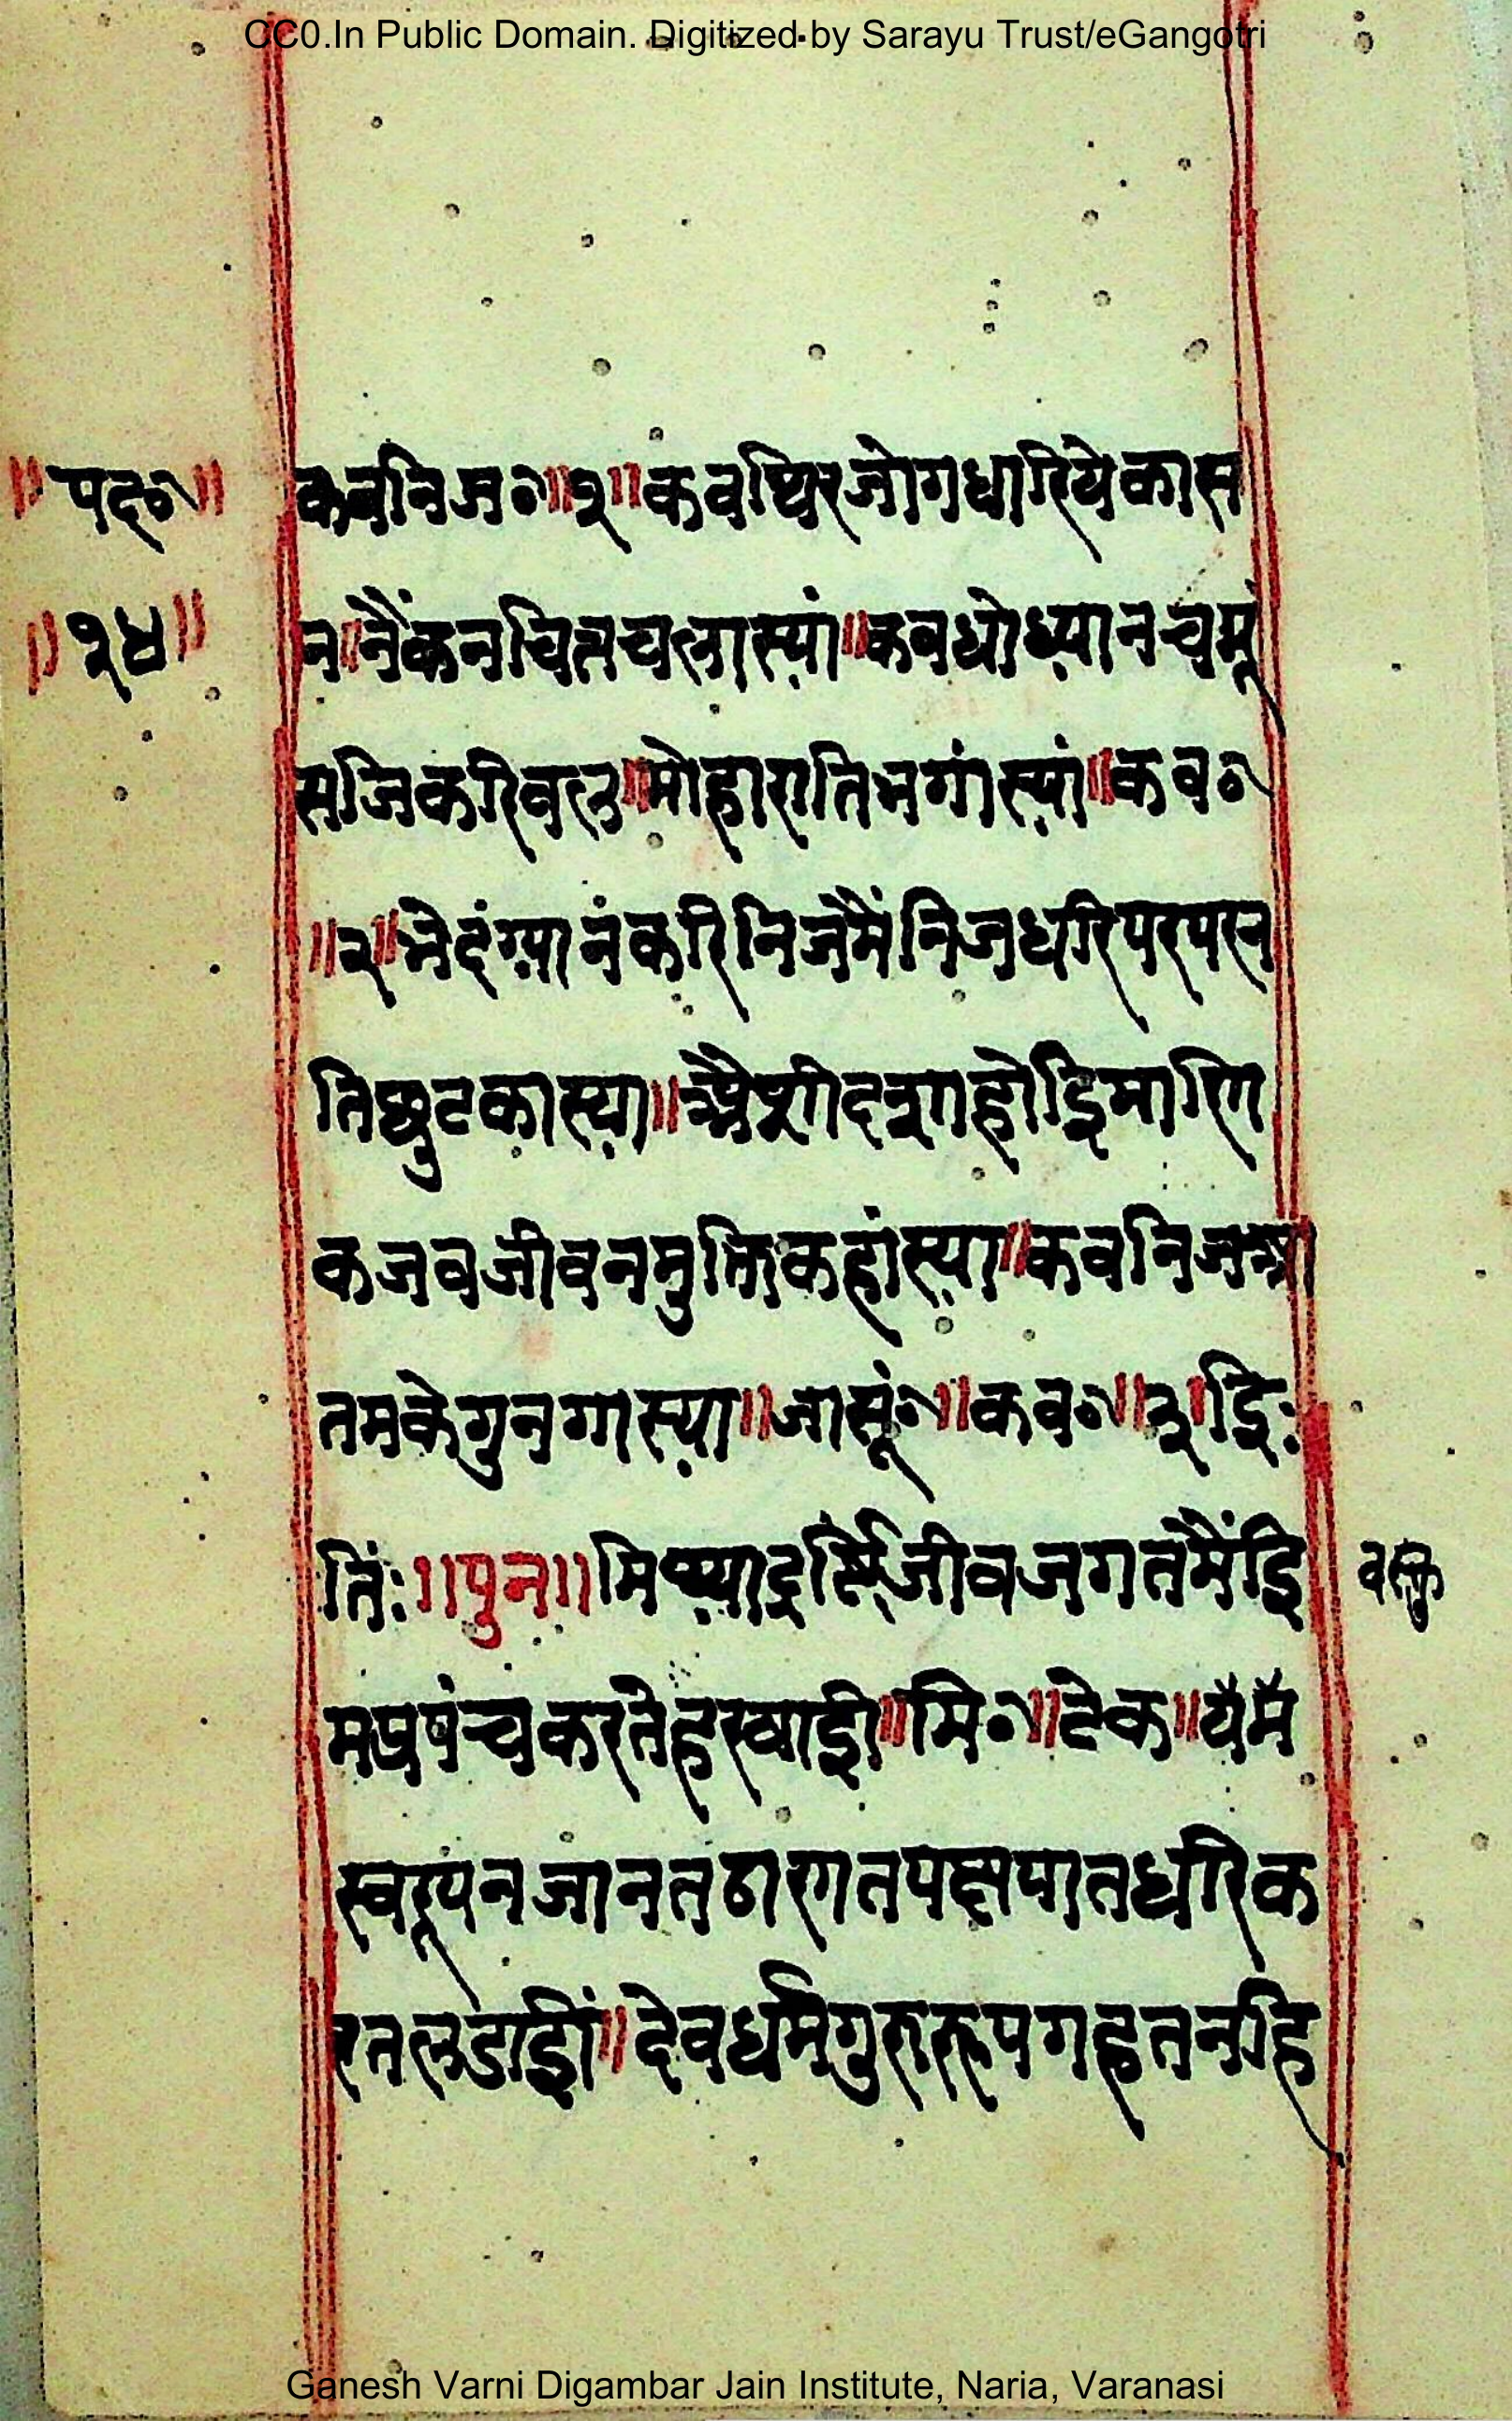 CC0.In Public Domain. Digitized by Sarayu Trust/eGangotri
॥पद०॥
॥१४॥
कबनिज०॥१॥कवथिरजोगधारियेकास
न॥नैंकनचितचलास्यां॥कबधोध्यानचमू
सजिकरिबल॥मोहारातिभगांस्यां॥कब०
॥२॥भेदंग्यानंकरिनिजमैंनिजधरिपरपरन
तिछुटकास्या॥अैशीदशाहोइिमारगि
कजबजीवनमुक्तिकहांस्या॥कबनिजआ
तमकेगुनगास्या॥जासूं०॥कब०॥३॥इिः
तिंः॥पुन॥मिथ्याद्रष्टिजीवजगतमैंइि
वस्तु
मप्रपंचकरतेहरखाइी॥मि०॥टेक॥
स्वरूपनजानतठारातपक्षपातधरिक
रतलडाइीं॥देवधर्मगुरुरूपगहतनहि
Ganesh Varni Digambar Jain Institute, Naria, Varanasi